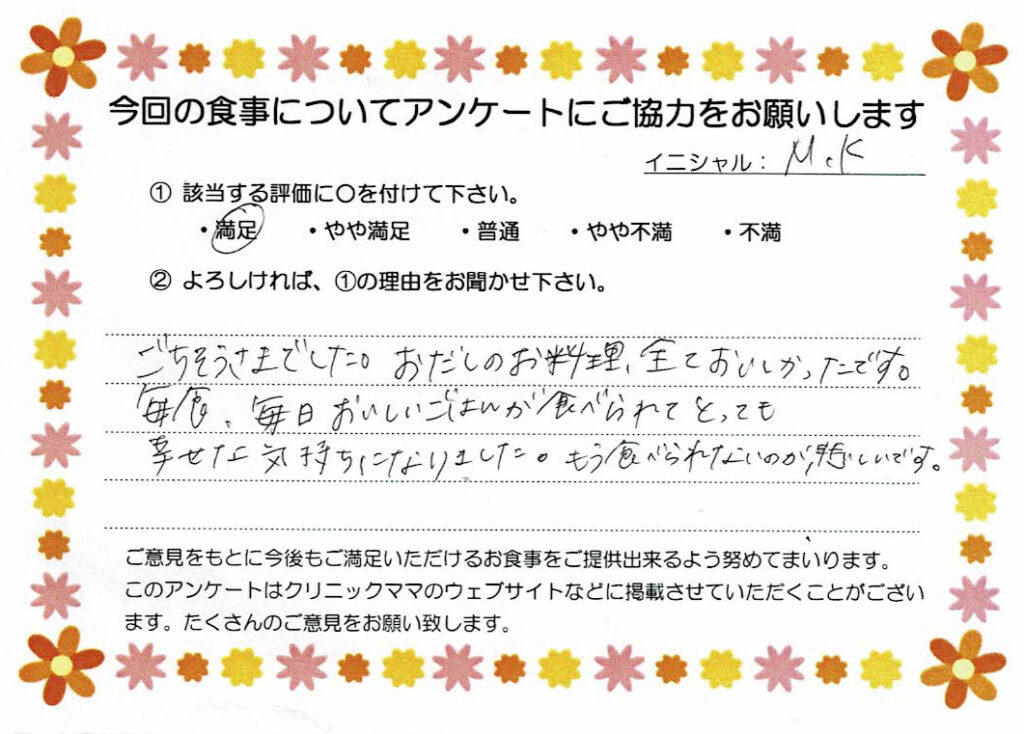 今回の食事についてアンケートにご協力をお願いします
イニシャル： M.K
① 該当する評価に〇を付けて下さい。
・満足 ・やや満足 ・普通 ・やや不満 ・不満
② よろしければ、①の理由をお聞かせ下さい。
ごちそうさまでした。おだしのお料理、全ておいしかったです。
毎食、毎日おいしいごはんが食べられてとっても
幸せな気持ちになりました。もう食べられないのが、悲しいです。
ご意見をもとに今後もご満足いただけるお食事をご提供出来るよう努めてまいります。
このアンケートはクリニックママのウェブサイトなどに掲載させていただくことがござい
ます。たくさんのご意見をお願い致します。